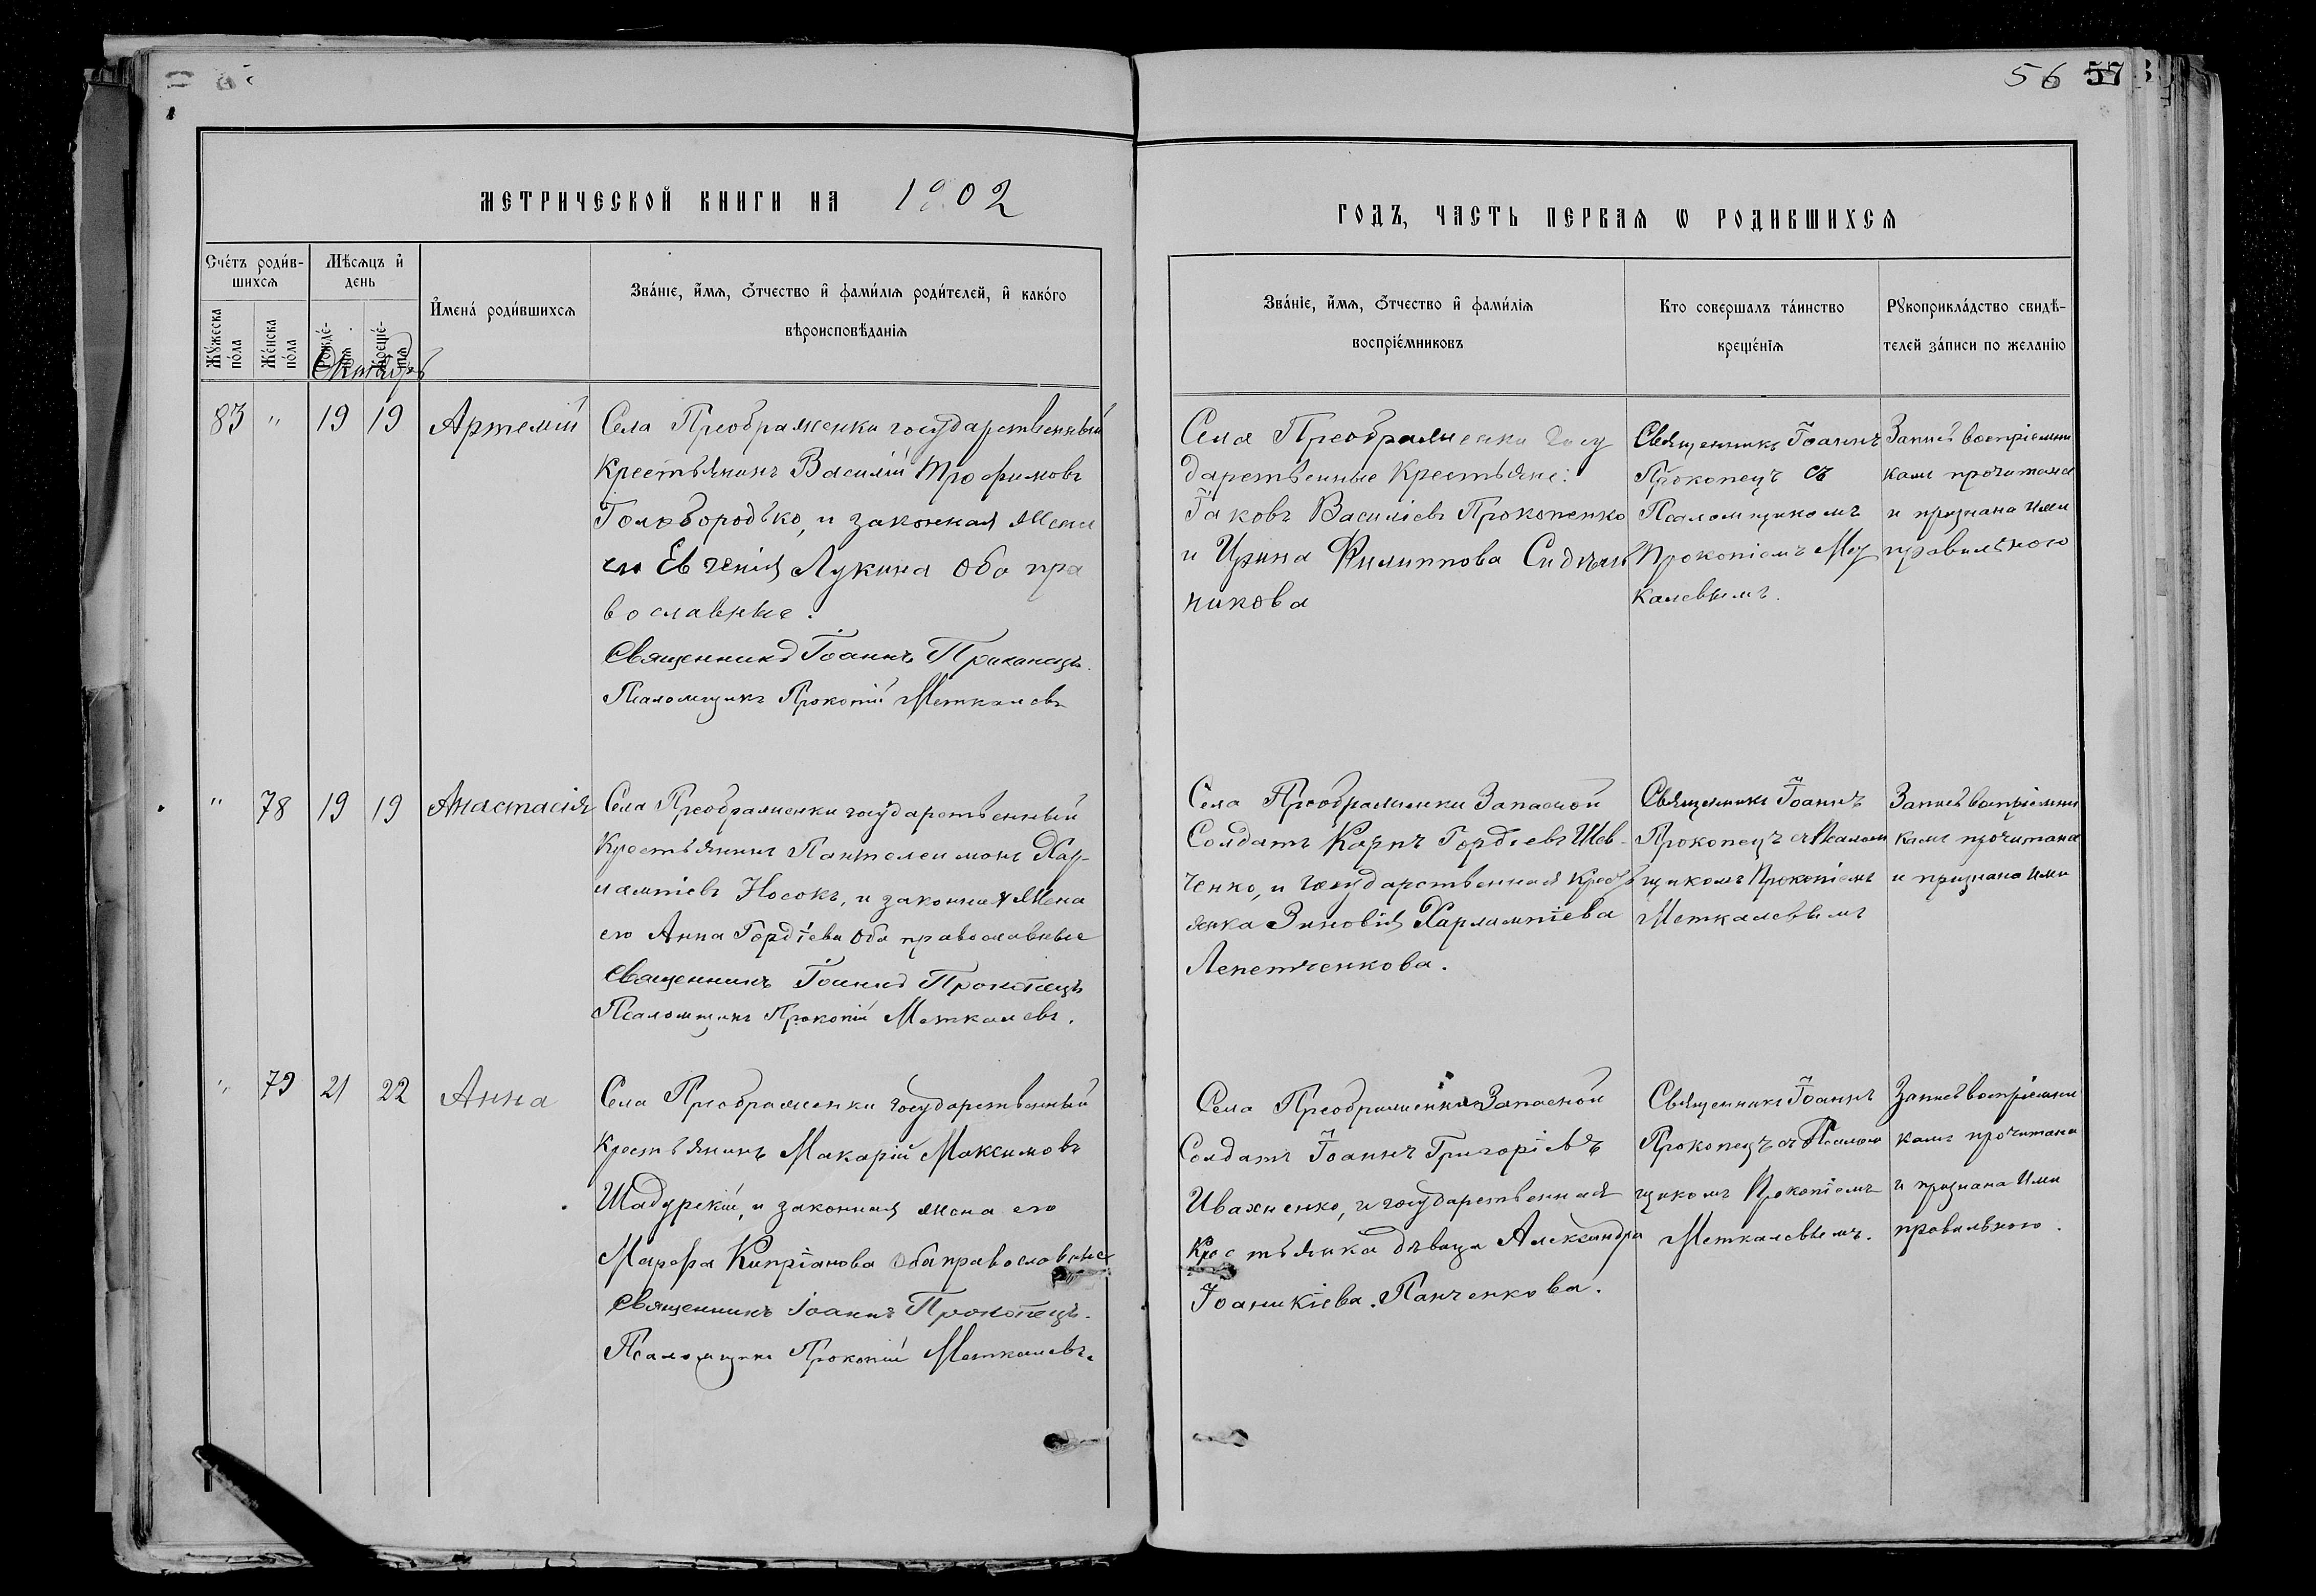 56 57
МЕТРИЧЕСКОЙ КНИГИ НА 1902
ГОДЪ, ЧАСТЬ ПЕРВАЯ Ѡ РОДИВШИХСЯ
Сче́тъ роди́в-
шихсѧ
Мѣсѧцъ и҆
день
И҆мена́ роди́вшихсѧ
Зва́нїе, и҆́мѧ, ѻ҆́тчество и҆ фами́лїѧ роди́телей, и҆ како́го
вѣроисповѣ́данїѧ
Мꙋ́жеска
по́ла
Же́нска
по́ла
Рожде́-
нїѧ
Креще́-
нїѧ
Октябрь
Зва́нїе, и҆́мѧ, ѻ҆́тчество и҆ фами́лїѧ
воспрїе́мниковъ
Кто совершалъ та́инство
креще́нїѧ
Рꙋкоприкла́дство свидѣ́-
телей за́писи по желанїю
83 " 19 19 Артемій
Села Преображенки государственный
крестьянинъ Василій Трофимовъ
Голобородько, и законная жена
его Евгенія Лукина оба пра
вославные.
Священникъ Іоаннъ Прокопецъ.
Псаломщикъ Прокопій Меткалевъ
Села Преображенки Госу
дарственные крестьяне:
Іаковъ Василіевъ Прокопенко
и Ирина Филиппова
никова
Священникъ Іоаннъ
Прокопецъ съ
Псаломщикомъ
Прокопіемъ Мет
калевымъ.
Запись воспріемни
камъ прочитана
и признана ими
правильною
" 78 19 19 Анастасія
Села Преображенки государственный
крестьянинъ Пантелеимонъ Хар-
лампіевъ Носокъ, и законная жена
его Анна Гордіева оба православные
Священникъ Іоаннъ Прокопецъ
Псаломщикъ Прокопій Меткалевъ.
Села Преображенки Запасной
Солдатъ Карпъ Гордіевъ Шев-
ченко, и государственная кресть
янка Зиновія Харлампіева
Лепетченкова.
Священникъ Іоаннъ
Прокопецъ съ Псалом
щикомъ Прокопіемъ
Меткалевымъ
Запись воспріемни
камъ прочитана
и признана ими
" 79 21 22 Анна
Села Преображенки государственный
крестьянинъ Макарій Максимовъ
Шадурскій, и законная жена его
Марфа Кипріанова оба православные
Священникъ Іоаннъ Прокопецъ.
Псаломщикъ Прокопій Меткалевъ.
Села Преображенки Запасной
Солдатъ Іоаннъ Григоріевъ
Ивахненко, и государственная
крестьянка дѣвица Александра
Іоаникіева Панченкова.
Священникъ Іоаннъ
Прокопецъ съ Псалом
щикомъ Прокопіемъ
Меткалевымъ.
Запись воспріемни
камъ прочитана
и признана ими
правильною.